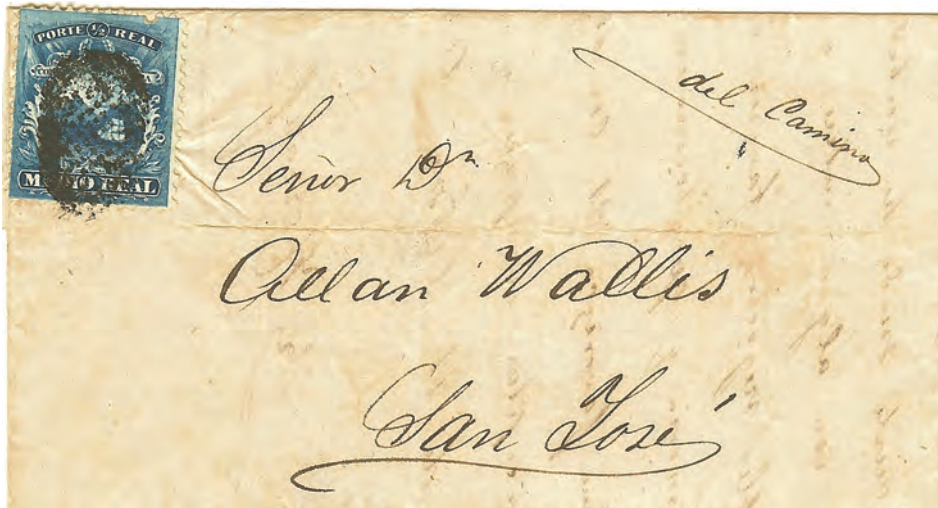 PORTE ½ REAL
MEDIO REAL
del Camino
Señor Dn
Allan Wallis
San José